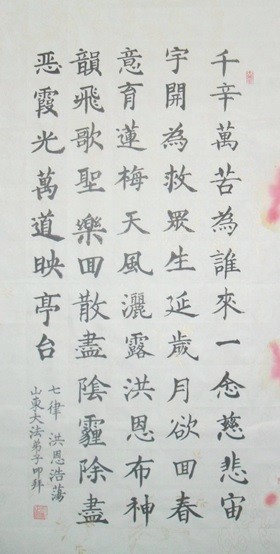 千辛萬苦為誰來一念慈悲宙
宇開為救眾生延歲月欲囬春
意育蓮梅天風灑露洪恩布神
韻飛歌聖樂囬散盡陰霾除盡
恶霞光萬道映亭台
七律 洪恩浩蕩
山東大法弟子叩拜